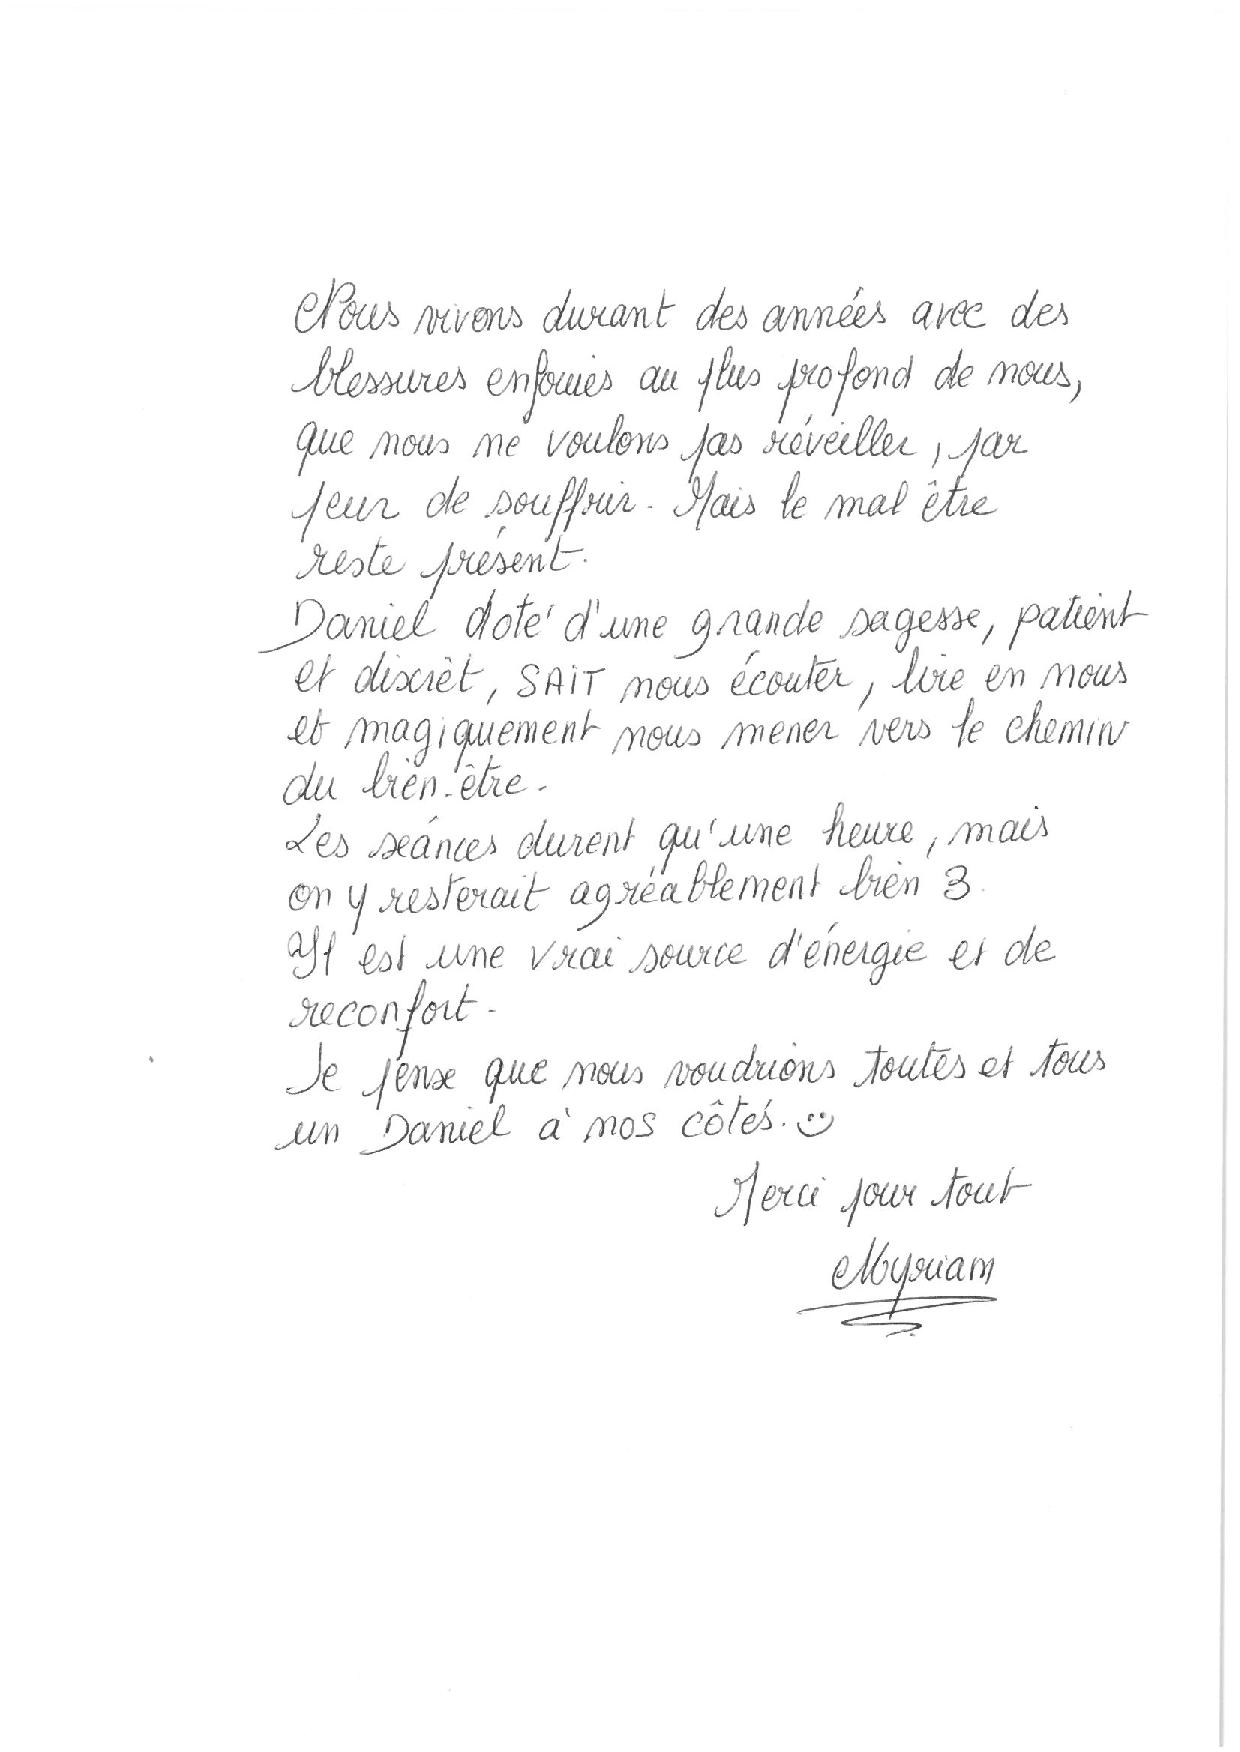 Nous vivons durant des années avec des
blessures enfouies au plus profond de nous,
que nous ne voulons pas réveiller, par
peur de souffrir. Mais le mal être
reste présent.
Daniel doté d'une grande sagesse, patient
et discret, SAIT nous écouter, lire en nous
et magiquement nous mener vers le chemin
du bien-être.
Les séances durent qu'une heure, mais
on y resterait agréablement bien 3.
Il est une vrai source d'énergie et de
reconfort.
Je pense que nous voudrions toutes et tous
un Daniel à nos côtés. ☺
Merci pour tout
Myriam